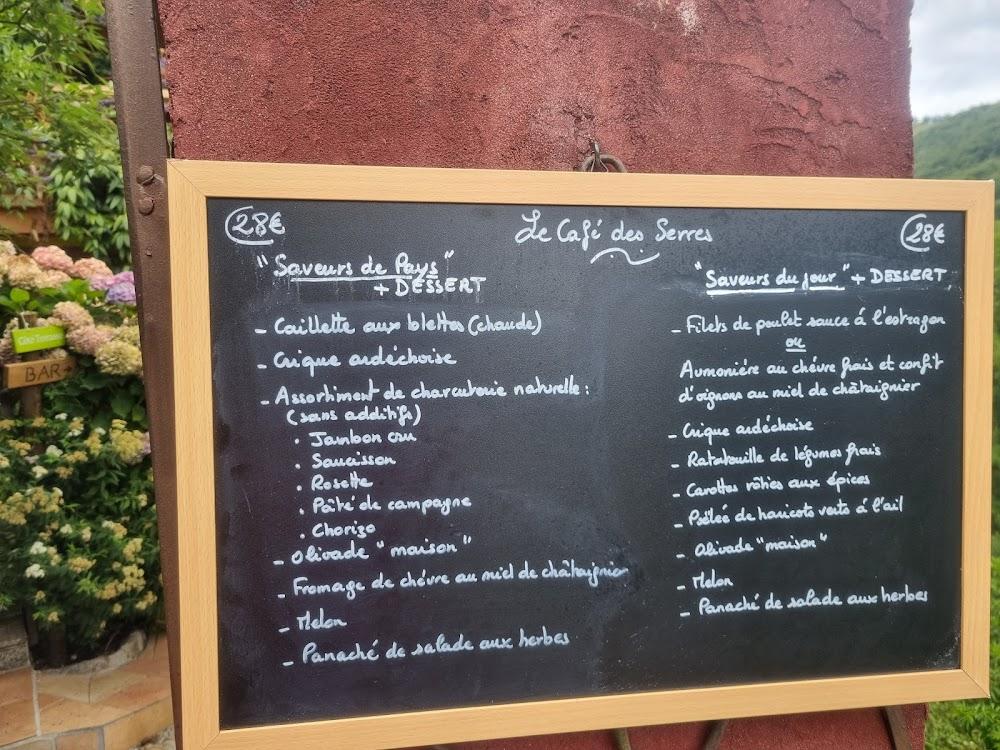 Le Café des Serres
28€
"Saveurs de Pays"
+ DESSERT
- Caillette aux blettes (chaude)
- Crique ardéchoise
- Assortiment de charcuterie naturelle :
(sans additifs)
. Jambon cru
. Saucisson
. Rosette
. Pâté de campagne
. Chorizo
- Olivade "maison"
- Fromage de chèvre au miel de châtaignier
- Melon
- Panaché de salade aux herbes
28€
"Saveurs du jour" + DESSERT
- Filets de poulet sauce à l'estragon
ou
Aumonière au chèvre frais et confit
d'oignons au miel de châtaignier
- Crique ardéchoise
- Ratatouille de légumes frais
- Carottes rôties aux épices
- Poêlée de haricots verts à l'ail
- Olivade "maison"
- Melon
- Panaché de salade aux herbes
BAR →